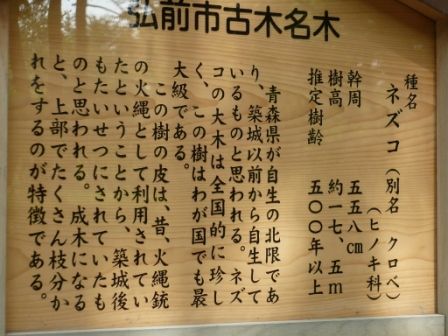 弘前市古木名木
種名
ネズコ（別名 クロベ）
（ヒノキ科）
幹周 五五八cm
樹高 約一七．五m
推定樹齢 五〇〇年以上
青森県が自生の北限であ
り、築城以前から自生して
いるものと思われる。ネズ
コの大木は全国的に珍し
く、この樹はわが国でも最
大級である。
この樹の皮は、昔、火縄銃
の火縄として利用されてい
たということから、築城後
もたいせつにされていたも
のと思われる。成木になる
と、上部でたくさん枝分か
れをするのが特徴である。